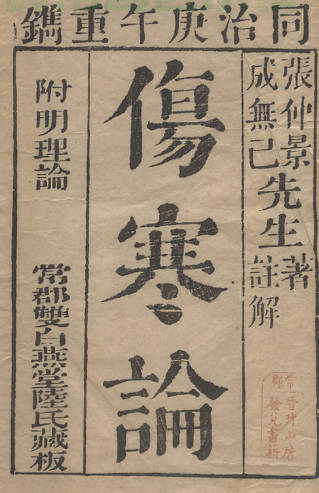 同治庚午重鐫
張仲景
成無己先生著
註解
傷寒論
附明理論
常郡雙白燕堂陸氏藏板